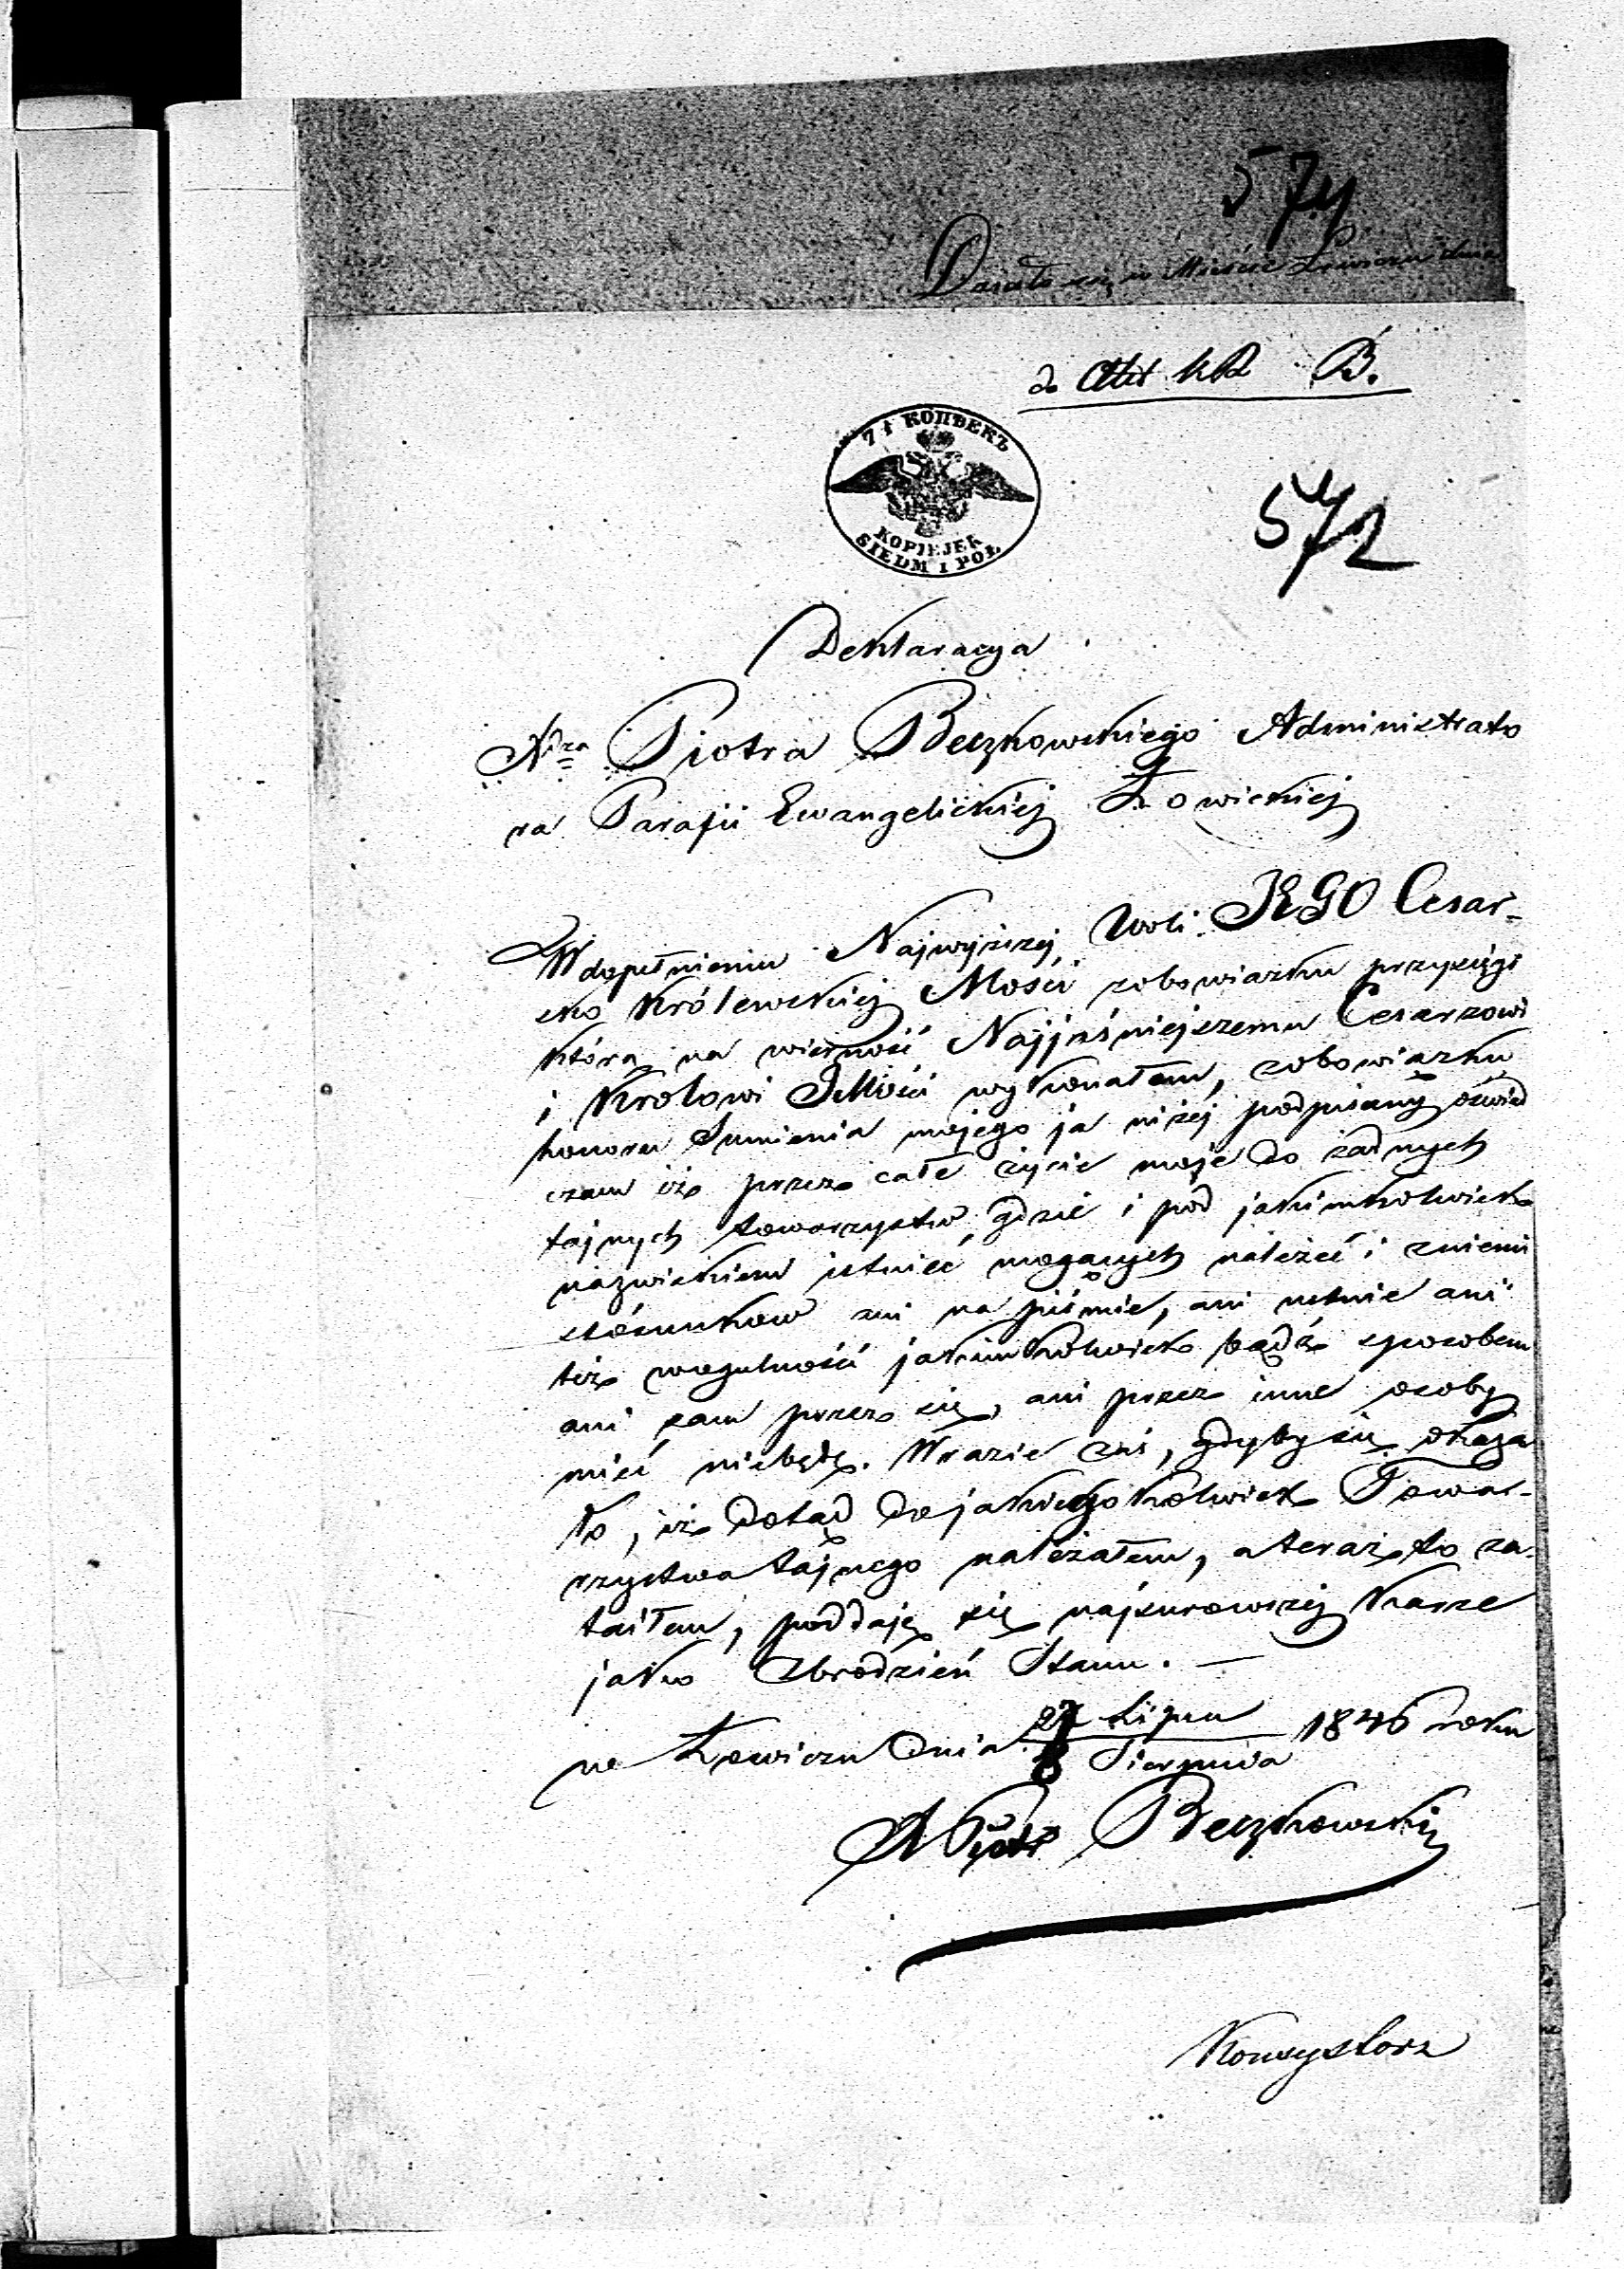 574
Działo się w Mieście Łowiczu dnia
do Akt B.
7½ КОПѢЕКЪ
KOPIEJEK
SIEDM I POŁ
572
Deklaracya
Piotra Beczkowskiego Administrato
ra Parafii Ewangelickiej Łowickiej
W dopełnieniu Najwyższej Woli JEGO Cesar-
sko Królewskiej Mości zobowiązku przysięgi
którą na wierność Najjaśniejszemu Cesarzowi
i Królowi JMości wykonałem, zobowiązku
honoru Sumienia mojego ja niżej podpisany oświad
czam iż przez całe życie moje do żadnych
tajnych towarzystw, gdzie i pod jakimkolwiek
nazwiskiem istnieć mogących należeć i zniemi
stósunków ani na piśmie, ani ustnie ani
też wogulności jakimkolwiek bądź sposobem
ani sam przez się, ani przez inne osoby
mieć niebędę. Wrazie zaś, gdyby się okaza
ło, iż dotąd do jakiegokolwiek Towar-
rzystwa tajnego należałem, a teraz to za-
taiłem, poddaję się najsurowszej karze
jako Zbrodzień Stanu. —
w Łowiczu Dnia 27 Lipca / 8 Sierpnia 1846 roku
Beczkowski
Konsystorz